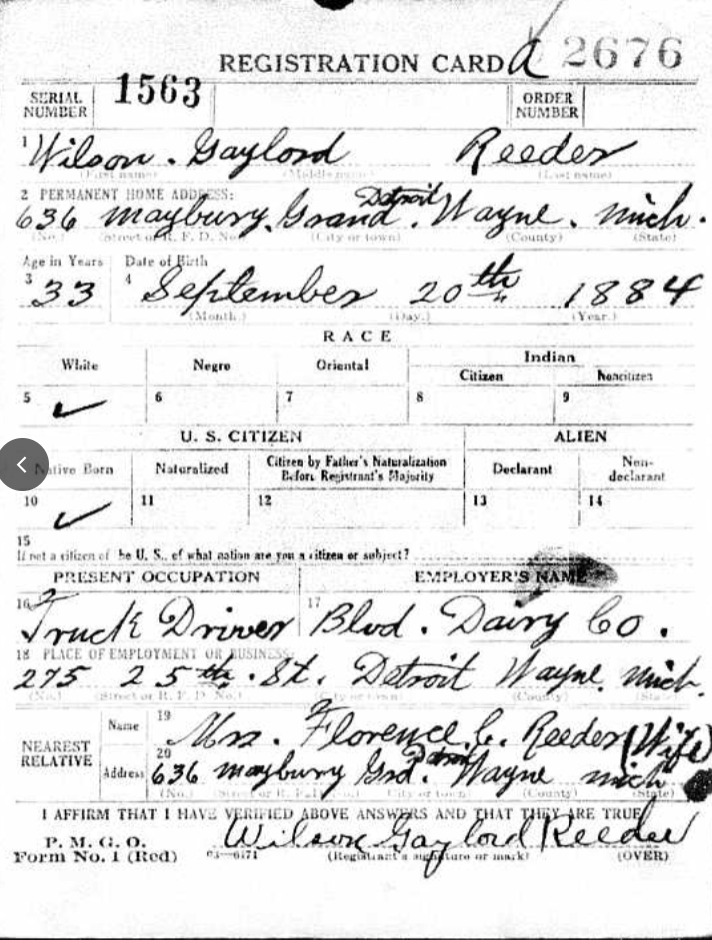 REGISTRATION CARD A 2676
SERIAL NUMBER 1563 ORDER NUMBER
1 Wilson. Gaylord Reeder
(First name) (Middle name) (Last name)
2 PERMANENT HOME ADDRESS:
636 Maybury Grand. Detroit Wayne. Mich.
(No.) (Street or R. F. D. No.) (City or town) (County) (State)
Age in Years Date of Birth
3 33 4 September 20th 1884
(Month.) (Day.) (Year.)
RACE
White Negro Oriental Indian
Citizen Noncitizen
5 ✓ 6 7 8 9
U. S. CITIZEN ALIEN
Native Born Naturalized Citizen by Father's Naturalization Before Registrant's Majority Declarant Non-declarant
10 ✓ 11 12 13 14
15
If not a citizen of the U. S., of what nation are you a citizen or subject?
PRESENT OCCUPATION EMPLOYER'S NAME
16 Truck Driver 17 Blvd. Dairy Co.
18 PLACE OF EMPLOYMENT OR BUSINESS:
275 25th. St. Detroit Wayne. Mich.
(No.) (Street or R. F. D. No.) (City or town) (County) (State)
NEAREST RELATIVE Name 19 Mrs. Florence C. Reeder (Wife)
Address 20 636 Maybury Grd. Detroit Wayne Mich
(No.) (Street or R. F. D. No.) (City or town) (County) (State)
I AFFIRM THAT I HAVE VERIFIED ABOVE ANSWERS AND THAT THEY ARE TRUE
P. M. G. O.
Form No. 1 (Red) 03—6171 Wilson Gaylord Reeder
(Registrant's signature or mark) (OVER)